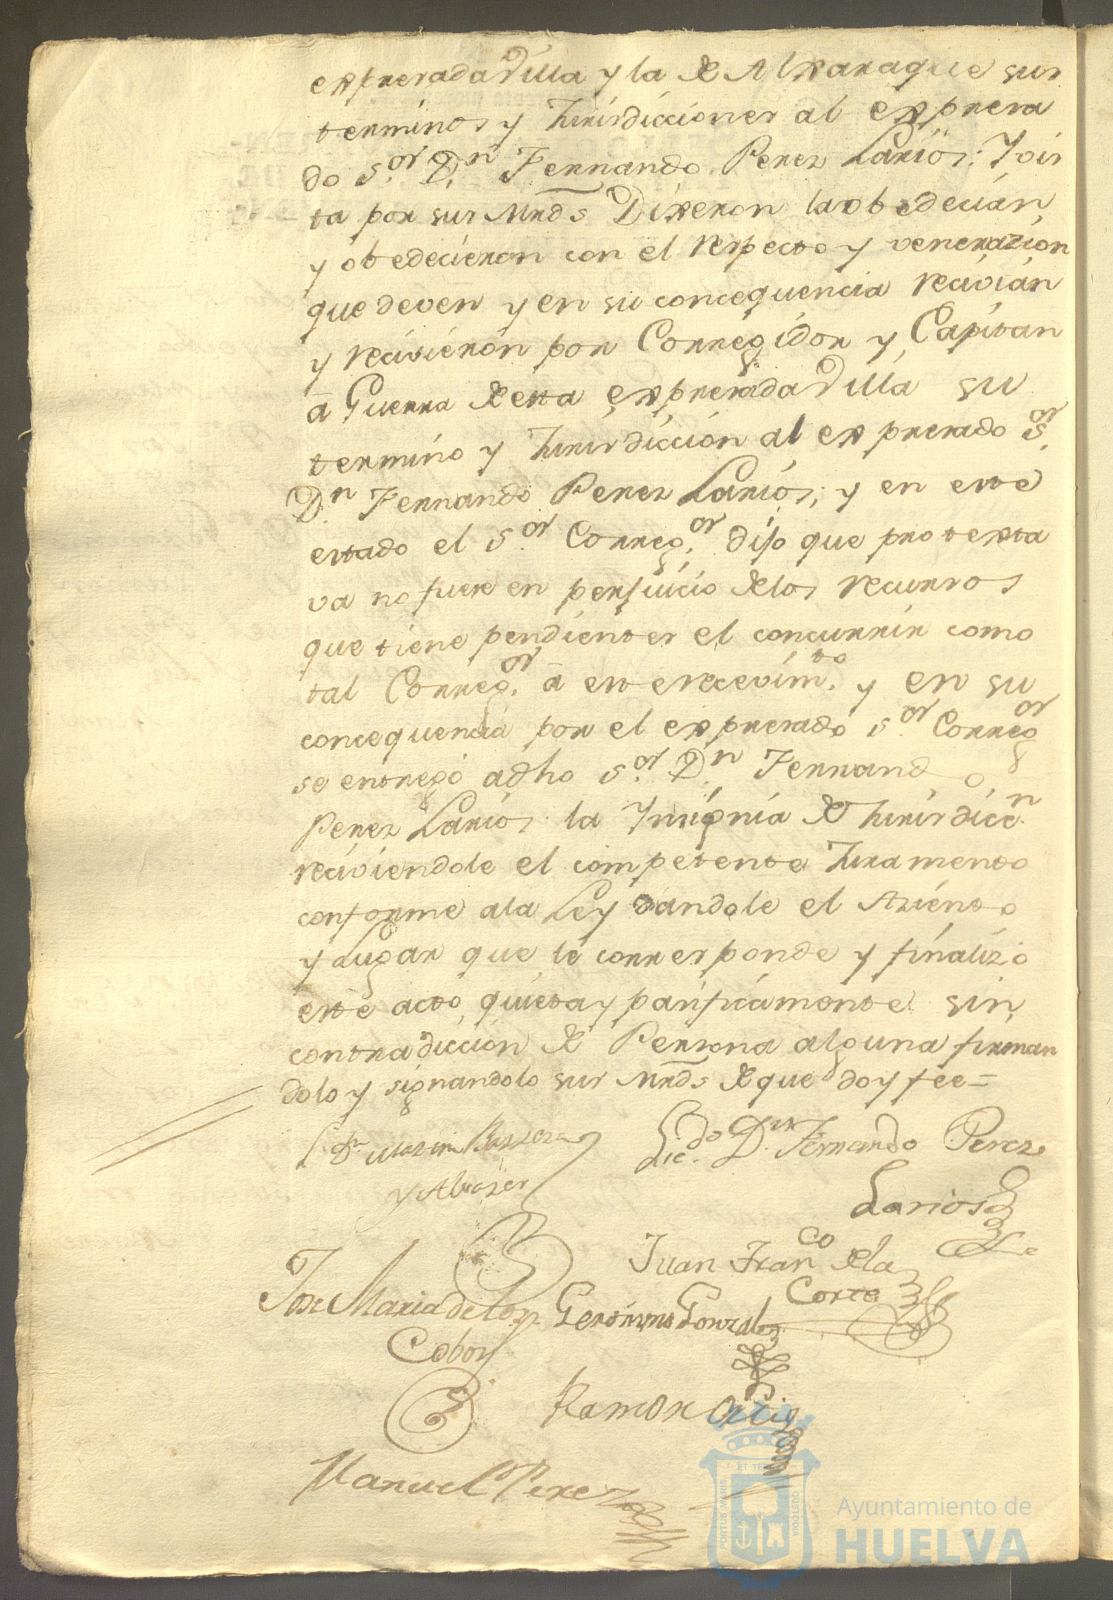 expresada Villa y la de Alxaraque sus
terminos y Jurisdicciones al expresa
do S.or D.n Fernando Perez Larios: Y ois
ta por sus Mrds Dixeron la obedecian,
y obedecieron con el respecto y venerazion
que deven y en su concequencia recivian
y recivieron por Corregidor y Capitan
a Guerra de esta expresada Villa su
termino y Jurisdiccion al expresado S.or
D.n Fernando Perez Larios; y en este
estado el S.or Correg.or dijo que protexta
va no fuere en perjuicio de los recursos
que tiene pendientes el concurrir como
tal Correg.or a este recevim.to y en su
concequencia por el expresado S.or Correg.or
se entregó adho S.or D.n Fernando
Perez Larios la Ynsignia de Jurisdicc.n
reciviendole el competente Juramento
conforme ala Ley dandole el Asiento
y Lugar que le corresponde y finalizó
este acto, quieta y pasificamente sin
contradiccion de Persona alguna firman
dolo y signandolo sus Mrds de que doy fee=
Lic.do D.n Fernando Perez
Larios
Juan Fran.co de la
Corte
Jose Maria de los
Cobos
Geronimo Gonzalez
Ramon
Manuel Perez
ET TERRAE
PORTUS MARIS
CUSTODIA
Ayuntamiento de
HUELVA